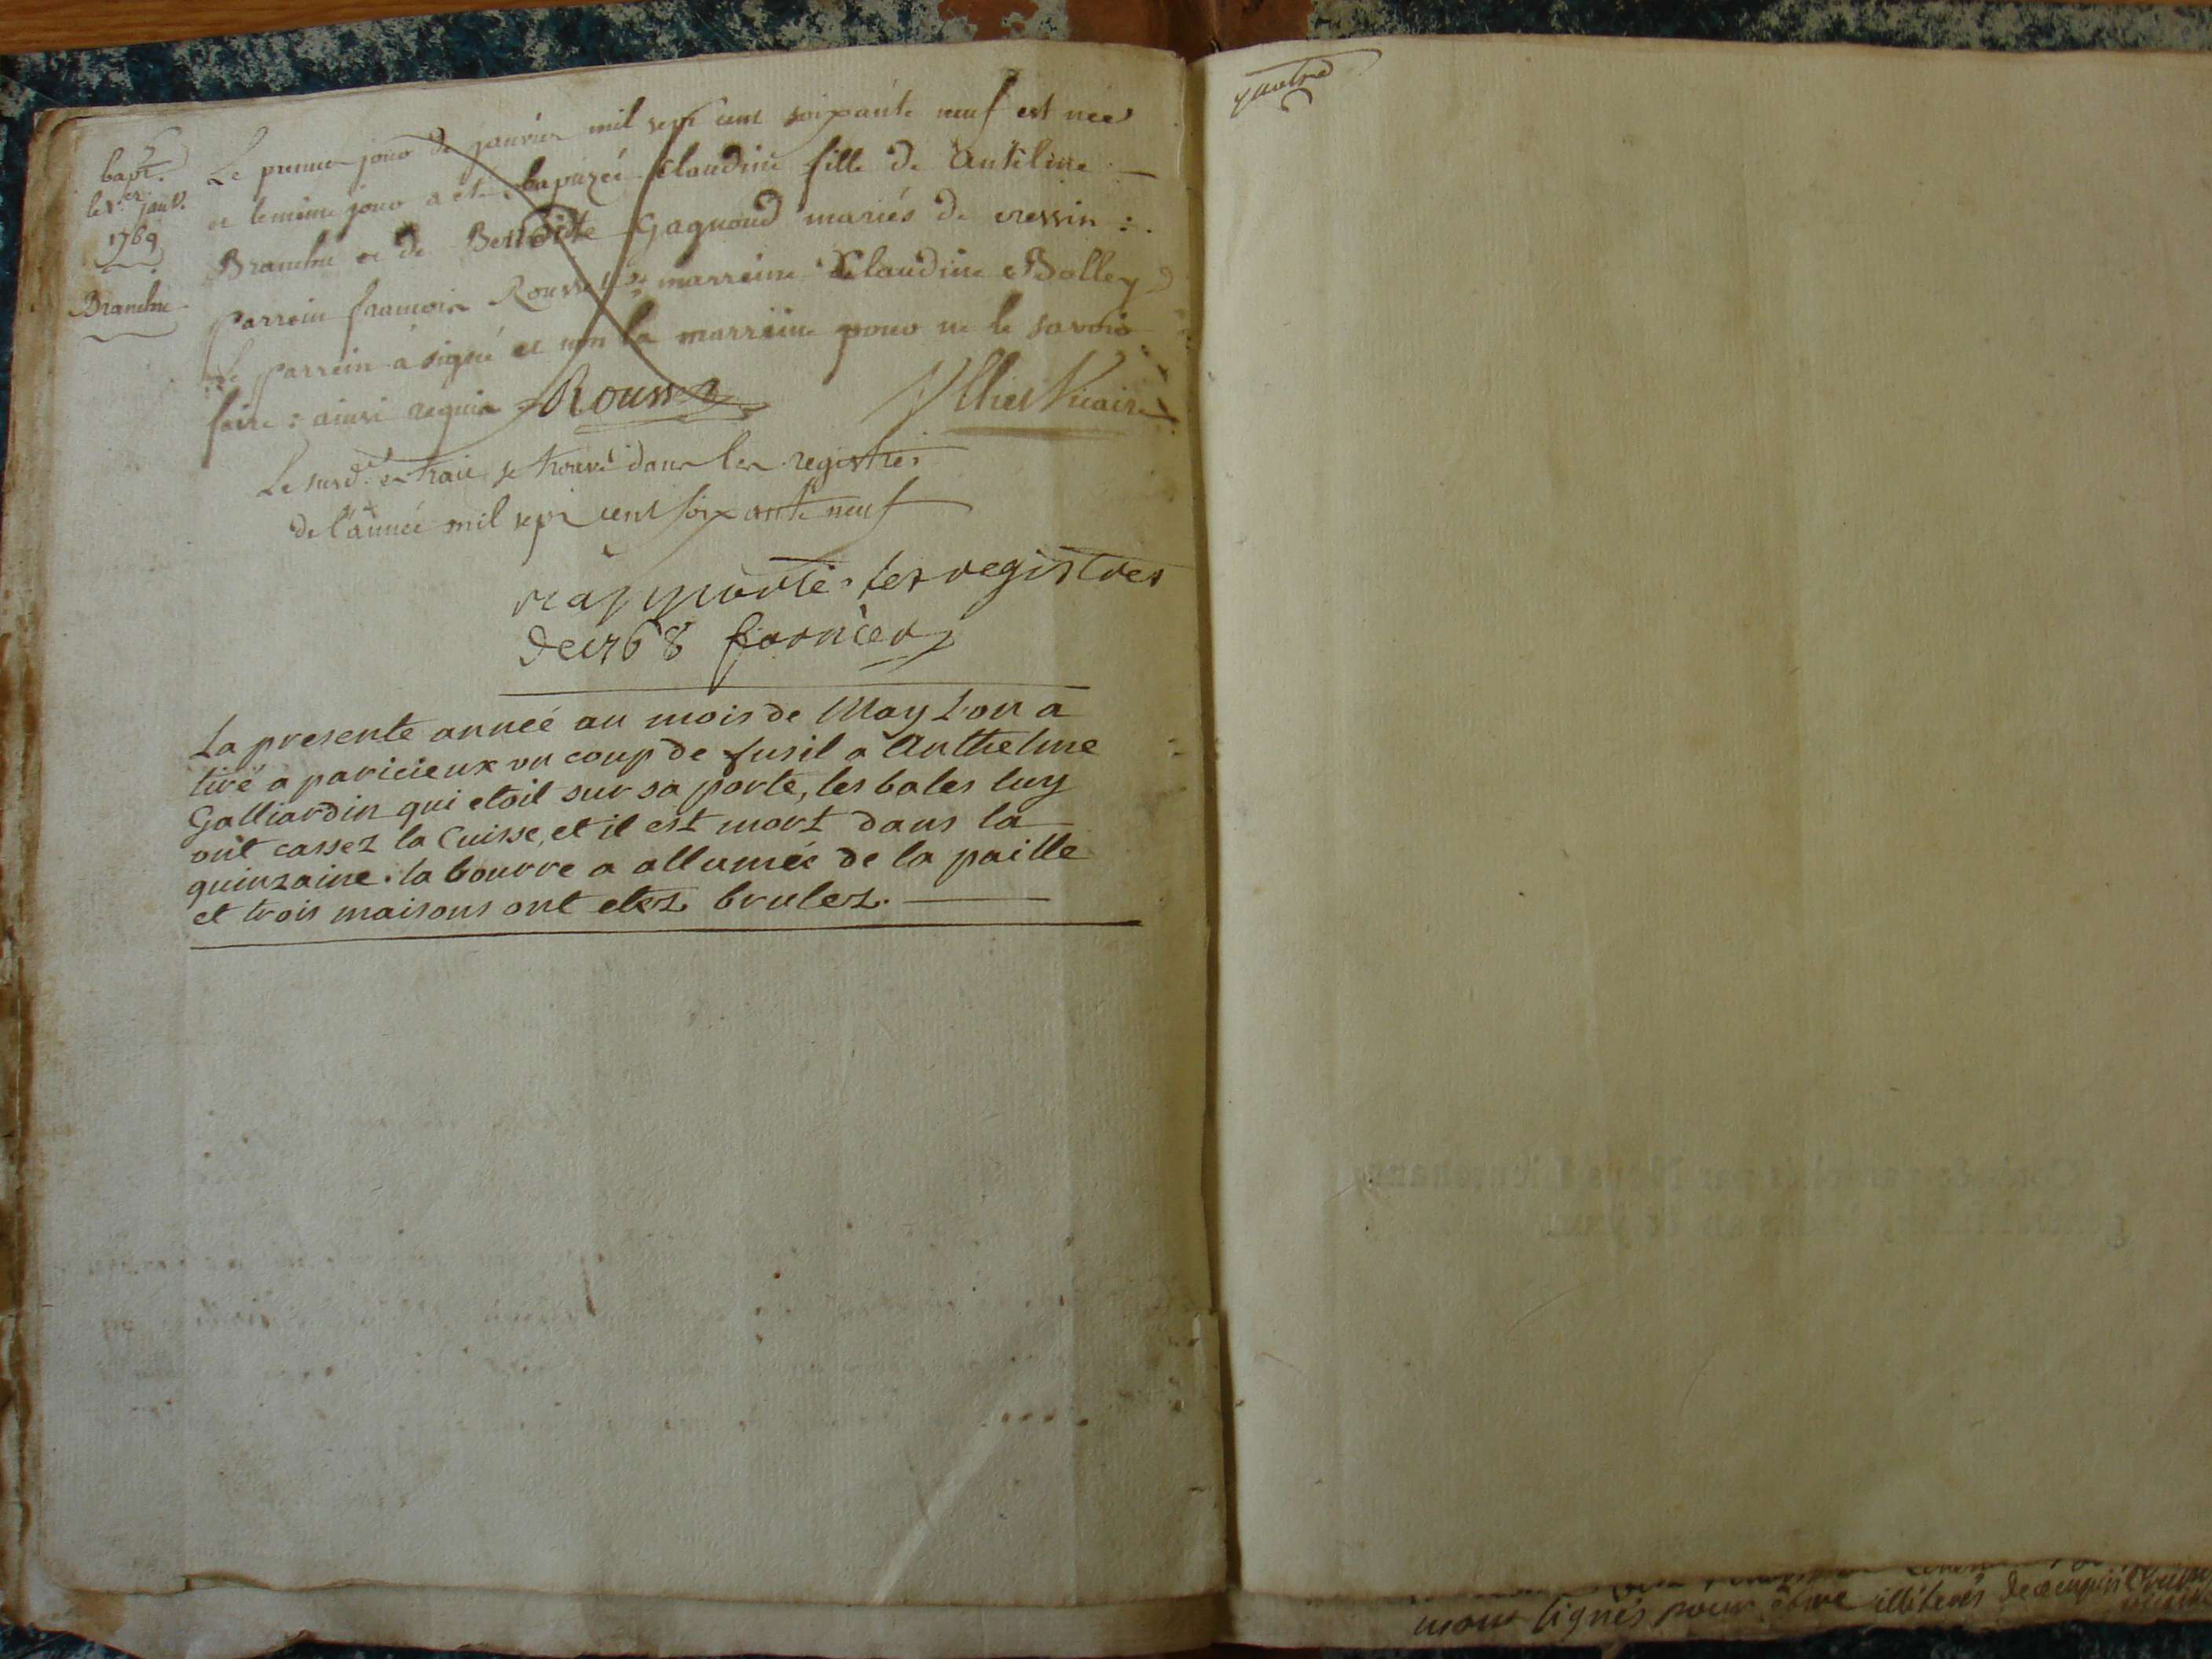 bapt.
le 1.er janv.
1769
Branche
Le premier jour de janvier mil sept cent soixante neuf est née
et le même jour a été baptizée Claudine fille de Antelme
Branche et de Benoite Gagnoud mariés de cressin :
parrein francois Rousset & marreine Claudine Bolley
Le parrein a signé et non la marreine pour ne le savoir
faire : ainsi requis Rousset Vicaire
Le susd. extrait se trouve dans les registres
de l'année mil sept cent soixante neuf
rapporté les registres
de 1768 fornier
La presente année au mois de May l'on a
tiré a paricieux un coup de fusil a Anthelme
Galliardin qui etoit sur sa porte, les bales luy
ont cassez la Cuisse, et il est mort dans la
quinzaine. la bourre a allumée de la paille
et trois maisons ont etez brulez.
quatre
nous signés pour être illiterés de ce enquis